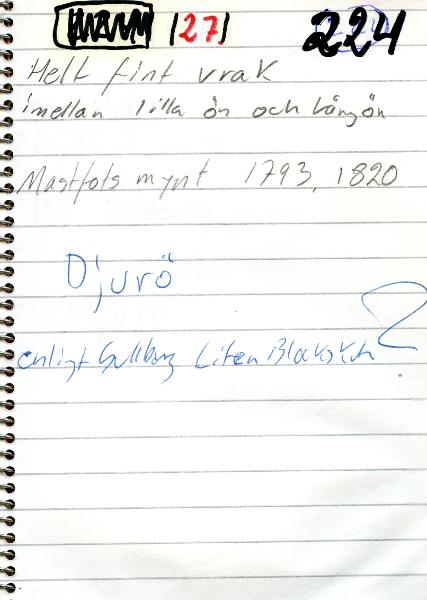 127 224
Helt fint vrak
imellan lilla ön och långön
Mastfots mynt 1793, 1820
Djurö
enligt Liten ?